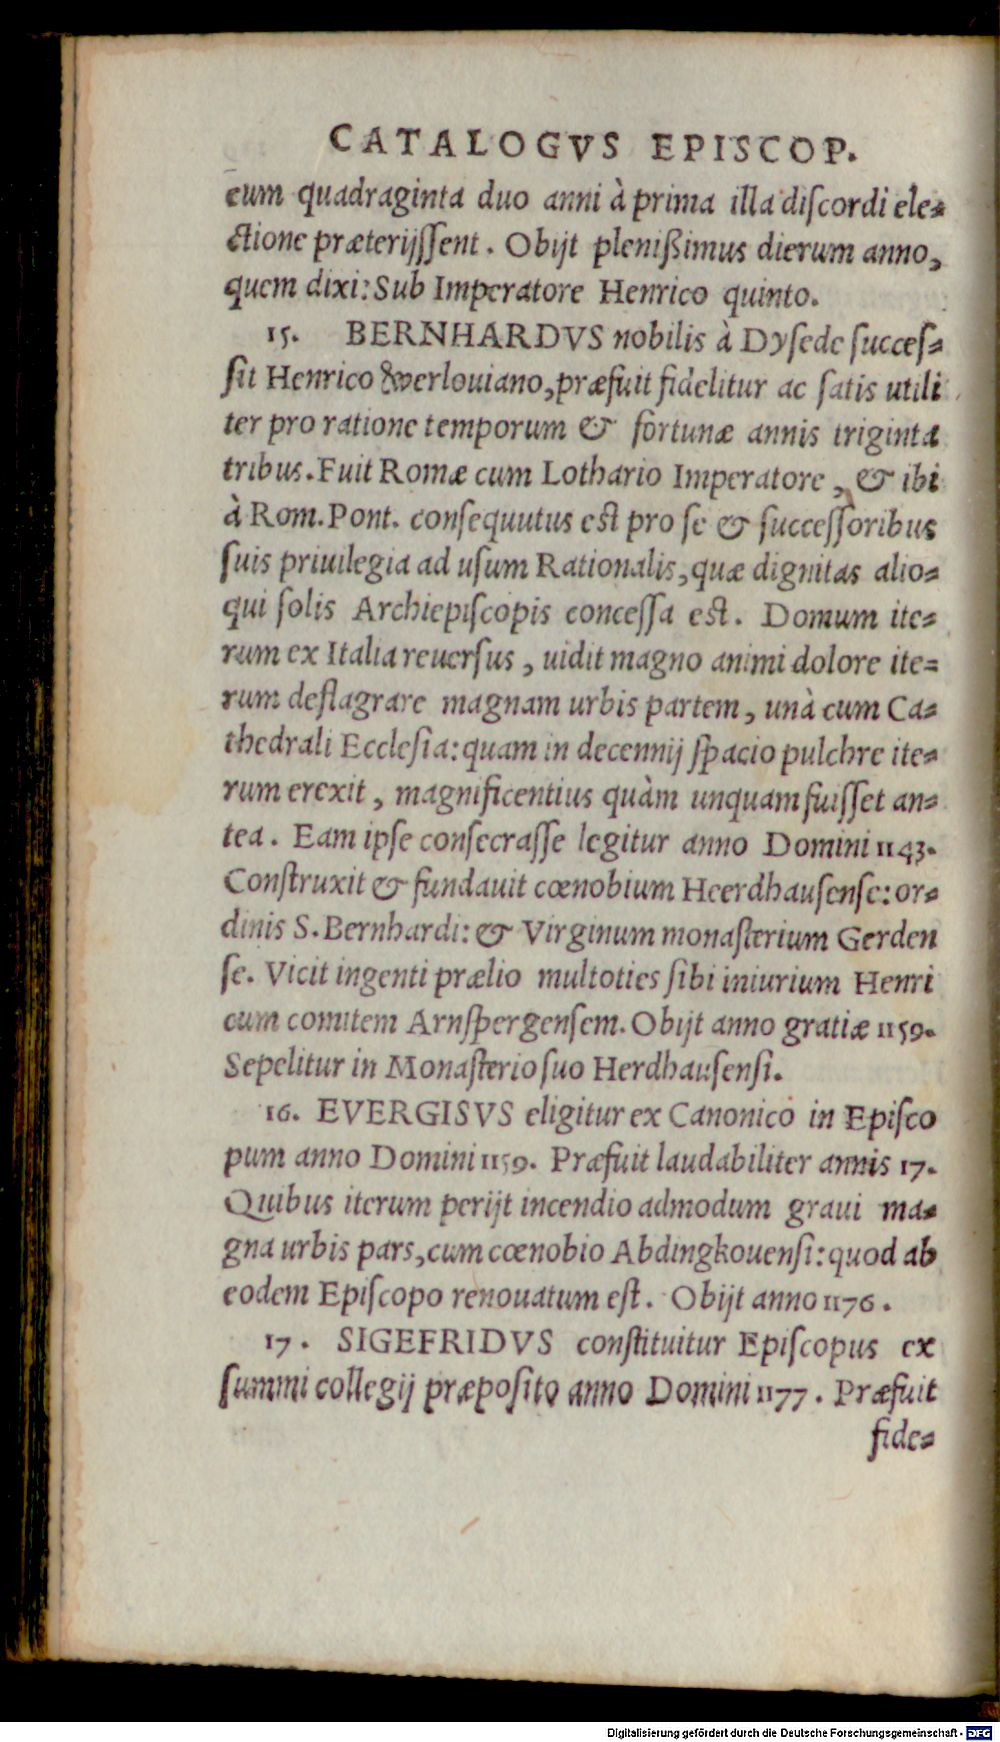 CATALOGVS EPISCOP.
cum quadraginta duo anni à prima illa diſcordi ele-
ctione præterijſſent. Obijt pleniſsimus dierum anno,
quem dixi: Sub Imperatore Henrico quinto.
15. BERNHARDVS nobilis à Dyſede succeſ-
ſit Henrico Werlouiano, præfuit fidelitur ac ſatis utili
ter pro ratione temporum & fortunæ annis triginta
tribus. Fuit Romæ cum Lothario Imperatore, & ibi
à Rom. Pont. conſequutus est pro ſe & ſucceſſoribus
ſuis priuilegia ad uſum Rationalis, quæ dignitas alio-
qui ſolis Archiepiſcopis conceſſa est. Domum ite-
rum ex Italia reuerſus, uidit magno animi dolore ite-
rum deflagrare magnam urbis partem, unà cum Ca-
thedrali Eccleſia: quam in decennij ſpacio pulchre ite-
rum erexit, magnificentius quàm unquam fuiſſet an-
tea. Eam ipſe conſecraſſe legitur anno Domini 1143.
Conſtruxit & fundauit cœnobium Heerdhauſenſe: or-
dinis S. Bernhardi: & Virginum monaſterium Gerden
ſe. Vicit ingenti prælio multoties ſibi iniurium Henri
cum comitem Arnſpergenſem. Obijt anno gratiæ 1159.
Sepelitur in Monaſterio ſuo Herdhauſenſi.
16. EVERGISVS eligitur ex Canonico in Epiſco
pum anno Domini 1159. Præfuit laudabiliter annis 17.
Quibus iterum perijt incendio admodum graui ma-
gna urbis pars, cum cœnobio Abdingkouenſi: quod ab
eodem Epiſcopo renouatum eſt. Obijt anno 1176.
17. SIGEFRIDVS conſtituitur Epiſcopus ex
ſummi collegij præpoſito anno Domini 1177. Præfuit
fide-
Digitalisierung gefördert durch die Deutsche Forschungsgemeinschaft - DFG